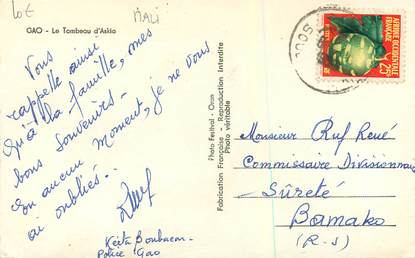 LOE
MALI
GAO - Le Tombeau d'Askia
Vous
rappelle ainsi
qu'à la famille, mes
bons souvenirs.
En aucun moment, je ne vous
ai oubliés..
Keita Boubacar
Police Gao
Photo Festival - Oran
Fabrication Française - Reproduction Interdite
Photo véritable
AFRIQUE OCCIDENTALE
FRANÇAISE
25F
POSTES
Monsieur Ruf René
Commissaire Divisionnaire
Sûreté
Bamako
(R-S)